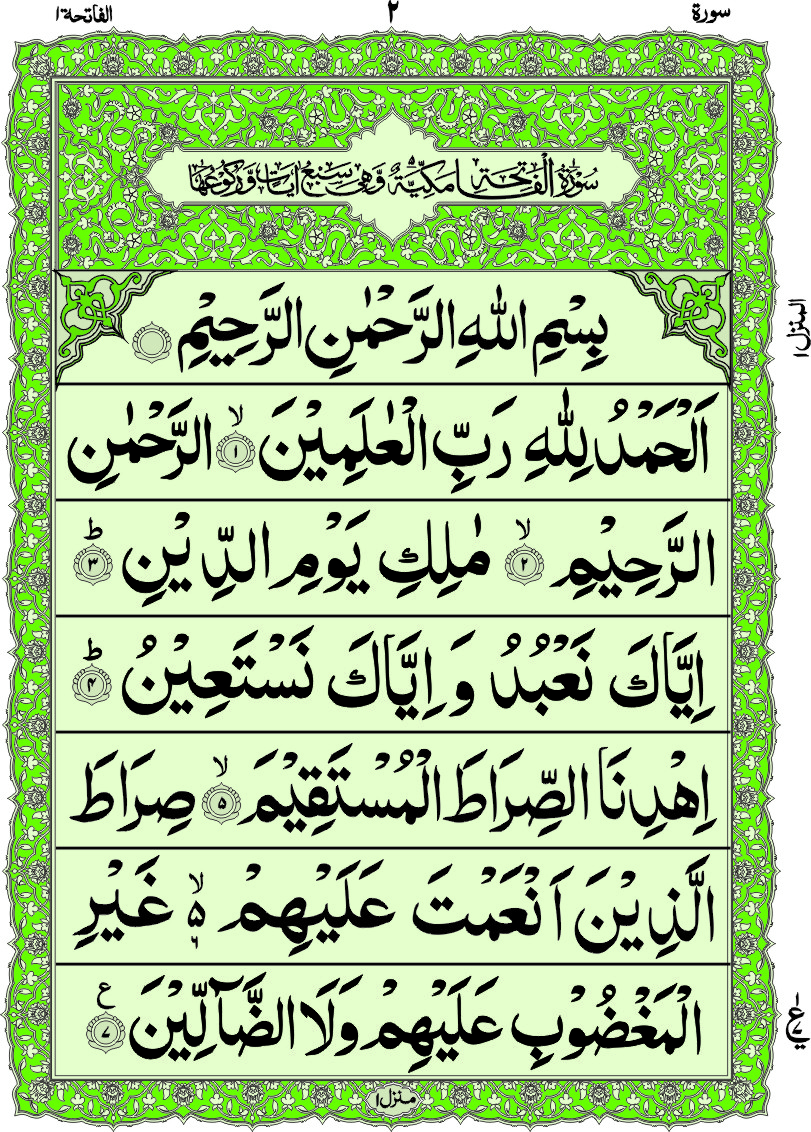 سورة ٢ الفاتحة ١
سُوْرَةُ الْفَاتِحَةِ مَكِّيَّةٌ وَّهِیَ سَبْعُ اٰيَاتٍ وَّرُكُوْعُهَا
المنزل ١
بِسْمِ اللّٰهِ الرَّحْمٰنِ الرَّحِيْمِ
اَلْحَمْدُ لِلّٰهِ رَبِّ الْعٰلَمِيْنَ ۙ﴿١﴾ الرَّحْمٰنِ
الرَّحِيْمِ ۙ﴿٢﴾ مٰلِكِ يَوْمِ الدِّيْنِ ؕ﴿٣﴾
اِيَّاكَ نَعْبُدُ وَ اِيَّاكَ نَسْتَعِيْنُ ؕ﴿۴﴾
اِهْدِنَا الصِّرَاطَ الْمُسْتَقِيْمَ ۙ﴿۵﴾ صِرَاطَ
الَّذِيْنَ اَنْعَمْتَ عَلَيْهِمْ ۙ۵ ٦ غَيْرِ
الْمَغْضُوْبِ عَلَيْهِمْ وَلَا الضَّآلِّيْنَ ﴿٧﴾ ع
منزل ١